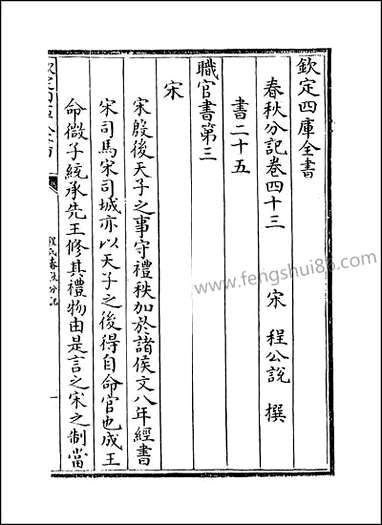 欽定四庫全書
春秋分記卷四十三
宋 程公說 撰
書二十五
職官書第三
宋
宋殷後天子之事守禮秩加於諸侯文八年經書
宋司馬宋司城亦以天子之後得自命官也成王
命微子統承先王修其禮物由是言之宋之制當
www.fengshui88.com